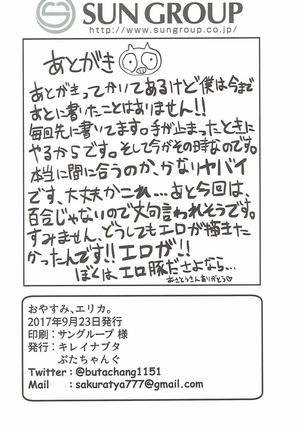 SUN GROUP
http://www.sungroup.co.jp/
あとがき
あとがきってかいてあるけど僕は今まで
あとに書いたことはありません!!
毎回先に書いてます。手が止まったときに
やるからです。そして今がその時なのです。
本当に間に合うのか、かなりヤバイ
です、大丈夫かこれ…あと今回は、
百合じゃないので文句言われそうです。
すみません、どうしてもエロが描きた
かったんです!!エロが!!
ぼくは、エロ豚ださよなら…
あさとうさんありがとう♡
おやすみ、エリカ。
2017年9月23日発行
印刷：サングループ 様
発行：キレイナブタ
ぶたちゃんぐ
Twitter : @butachang1151
Mail : sakuratya777@gmail.com